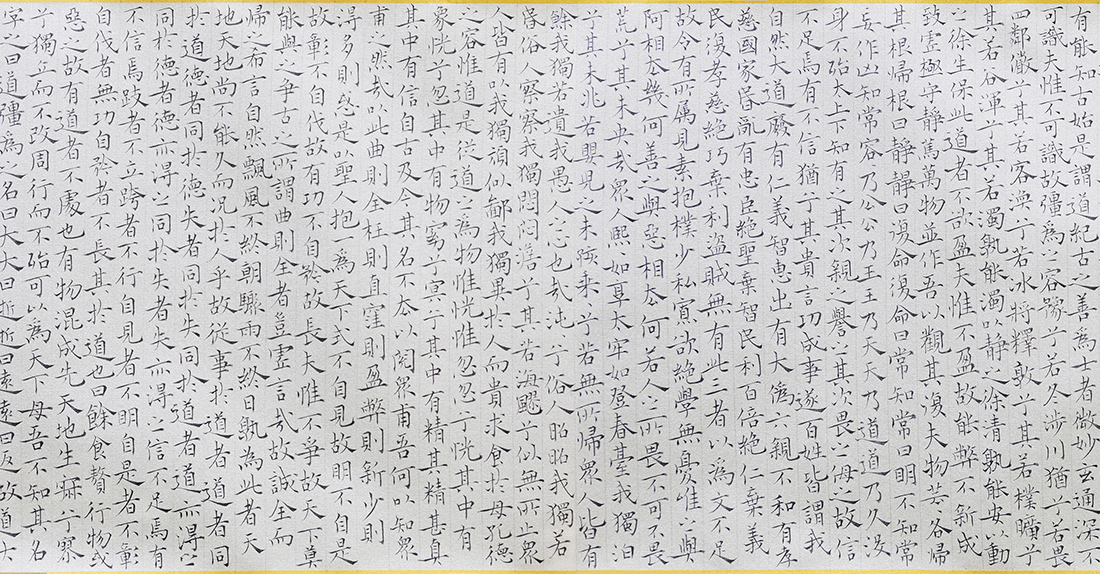 有能知古始是謂道紀古之善為士者微妙玄通深不
可識夫惟不可識故彊為之容豫兮若冬涉川猶兮若畏
四鄰儼兮其若客渙兮若冰將釋敦兮其若樸曠兮
其若谷渾兮其若濁孰能濁以靜之徐清孰能安以動
之徐生保此道者不欲盈夫惟不盈故能弊不新成
致虛極守靜篤萬物並作吾以觀其復夫物芸芸各歸
其根歸根曰靜靜曰復命復命曰常知常曰明不知常
妄作凶知常容乃公公乃王王乃天天乃道道乃久沒
身不殆太上下知有之其次親之譽之其次畏之侮之故信
不足焉有不信猶兮其貴言功成事遂百姓皆謂我
自然大道廢有仁義智惠出有大偽六親不和有孝
慈國家昬亂有忠臣絕聖棄智民利百倍絕仁棄義
民復孝慈絕巧棄利盜賊無有此三者以為文不足
故令有所屬見素抱樸少私寡欲絕學無憂惟之與
阿相去幾何善之與惡相去何若人之所畏不可不畏
荒兮其未央哉眾人熙熙如享太牢如登春臺我獨泊
兮其未兆若嬰兒之未孩乘乘兮若無所歸眾人皆有
餘我獨若遺我愚人之心也哉沌沌兮俗人昭昭我獨若
昏俗人察察我獨悶悶澹兮其若海飂兮似無所止眾
人皆有以我獨頑似鄙我獨異於人而貴求食於母孔德
之容惟道是從道之為物惟恍惟忽忽兮恍其中有
象恍兮忽其中有物窈兮冥兮其中有精其精甚真
其中有信自古及今其名不去以閱眾甫吾何以知眾
甫之然哉以此曲則全枉則直窪則盈弊則新少則
得多則惑是以聖人抱一為天下式不自見故明不自是
故彰不自伐故有功不自矜故長夫惟不爭故天下莫
能與之爭古之所謂曲則全者豈虛言哉故誠全而
歸之希言自然飄風不終朝驟雨不終日孰為此者天
地天地尚不能久而況於人乎故從事於道者道者同
於道德者同於德失者同於失同於道者道亦得之
同於德者德亦得之同於失者失亦得之信不足焉有
不信跂者不立跨者不行自見者不明自是者不彰
自伐者無功自矜者不長其於道也曰餘食贅行物或
惡之故有道者不處也有物混成先天地生寂兮寥
兮獨立而不改周行而不殆可以為天下母吾不知其名
字之曰道彊為之名曰大大曰逝逝曰遠遠曰返故道大